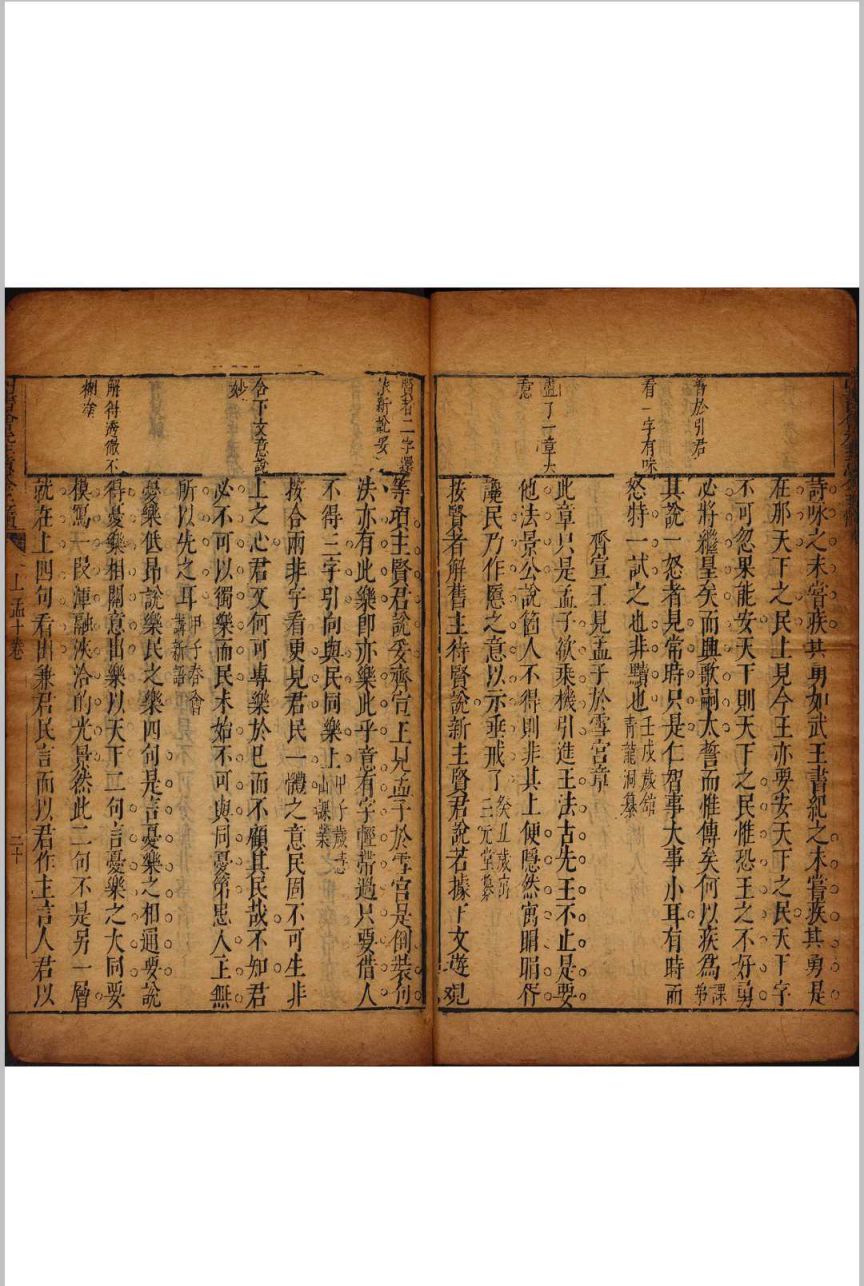 詩咏之未嘗疾其勇如武王書紀之未嘗疾其勇是
在那天下之民上見今王亦要安天下之民天下字
不可忽果能安天下則天下之民惟恐王之不好勇
必將繼皇矣而興歌嗣太誓而惟傳矣何以疾為 課弟
其說一怒者見常時只是仁智事大事小耳有時而
怒特一試之也非黷也 壬戌歲館青龍洞纂
齊宣王見孟子於雪宮章
此章只是孟子欲乘機引進王法古先王不止是要
他法景公說箇人不得則非其上便隱然寓睊睊胥
讒民乃作慝之意以示垂戒了 癸丑歲寓三元堂纂
按賢者解舊主待賢說新主賢君說若據下文遊觀
善於引君
看一字有味
盡了一章大
意
等項主賢君說妥齊宣王見孟子於雪宮是倒裝句
法亦有此樂即亦樂此乎意有字輕帶過只要借人
不得三字引向與民同樂上 甲子歲惠山課業
按合兩非字看更見君民一體之意民固不可生非
上之心君又何可專樂於己而不顧其民哉不知君
必不可以獨樂而民未始不可與同憂第患人上無
所以先之耳 甲子春會講新語
憂樂低昂說樂民之樂四句是言憂樂之相通要說
得憂樂相關意出樂以天下二句言憂樂之大同要
模寫一段渾融浹洽的光景然此二句不是另一層
就在上四句看出兼君民言而以君作主言人君以
賢者二字謹
求新說妥
合下文意說
妙
解得透徹不
糊塗
上孟十卷
二十